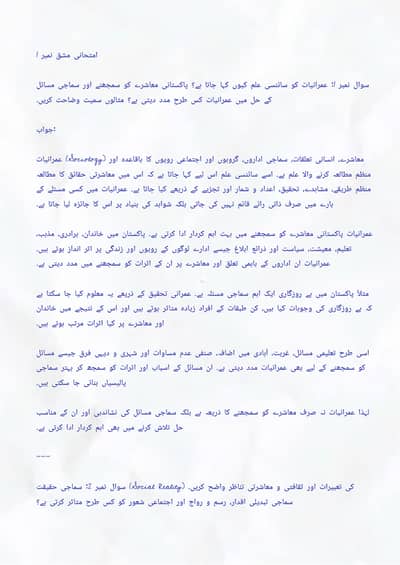 امتحانی مشق نمبر ا
سوال نمبر ا: عمرانیات کو سائنسی علم کیوں کہا جاتا ہے؟ پاکستانی معاشرے کو سمجھنے اور سماجی مسائل
کے حل میں عمرانیات کس طرح مدد دیتی ہے؟ مثالوں سمیت وضاحت کریں۔
جواب:
معاشرے، انسانی تعلقات، سماجی اداروں، گروہوں اور اجتماعی رویوں کا باقاعدہ اور (Sociology) عمرانیات
منظم مطالعہ کرنے والا علم ہے۔ اسے سائنسی علم اس لیے کہا جاتا ہے کہ اس میں معاشرتی حقائق کا مطالعہ
منظم طریقے، مشاہدے، تحقیق، اعداد و شمار اور تجزیے کے ذریعے کیا جاتا ہے۔ عمرانیات میں کسی مسئلے کے
بارے میں صرف ذاتی رائے قائم نہیں کی جاتی بلکہ شواہد کی بنیاد پر اس کا جائزہ لیا جاتا ہے۔
عمرانیات پاکستانی معاشرے کو سمجھنے میں بہت اہم کردار ادا کرتی ہے۔ پاکستان میں خاندان، برادری، مذہب،
تعلیم، معیشت، سیاست اور ذرائع ابلاغ جیسے ادارے لوگوں کے رویوں اور زندگی پر اثر انداز ہوتے ہیں۔
عمرانیات ان اداروں کے باہمی تعلق اور معاشرے پر ان کے اثرات کو سمجھنے میں مدد دیتی ہے۔
مثلاً پاکستان میں بے روزگاری ایک اہم سماجی مسئلہ ہے۔ عمرانی تحقیق کے ذریعے یہ معلوم کیا جا سکتا ہے
کہ بے روزگاری کی وجوہات کیا ہیں، کن طبقات کے افراد زیادہ متاثر ہوتے ہیں اور اس کے نتیجے میں خاندان
اور معاشرے پر کیا اثرات مرتب ہوتے ہیں۔
اسی طرح تعلیمی مسائل، غربت، آبادی میں اضافہ، صنفی عدم مساوات اور شہری و دیہی فرق جیسے مسائل
کو سمجھنے کے لیے بھی عمرانیات مدد دیتی ہے۔ ان مسائل کے اسباب اور اثرات کو سمجھ کر بہتر سماجی
پالیسیاں بنائی جا سکتی ہیں۔
لہٰذا عمرانیات نہ صرف معاشرے کو سمجھنے کا ذریعہ ہے بلکہ سماجی مسائل کی نشاندہی اور ان کے مناسب
حل تلاش کرنے میں بھی اہم کردار ادا کرتی ہے۔
---
کی تعبیرات اور ثقافتی و معاشرتی تناظر واضح کریں۔ (Social Reality) سوال نمبر ۲: سماجی حقیقت
سماجی تبدیلی اقدار، رسم و رواج اور اجتماعی شعور کو کس طرح متاثر کرتی ہے؟